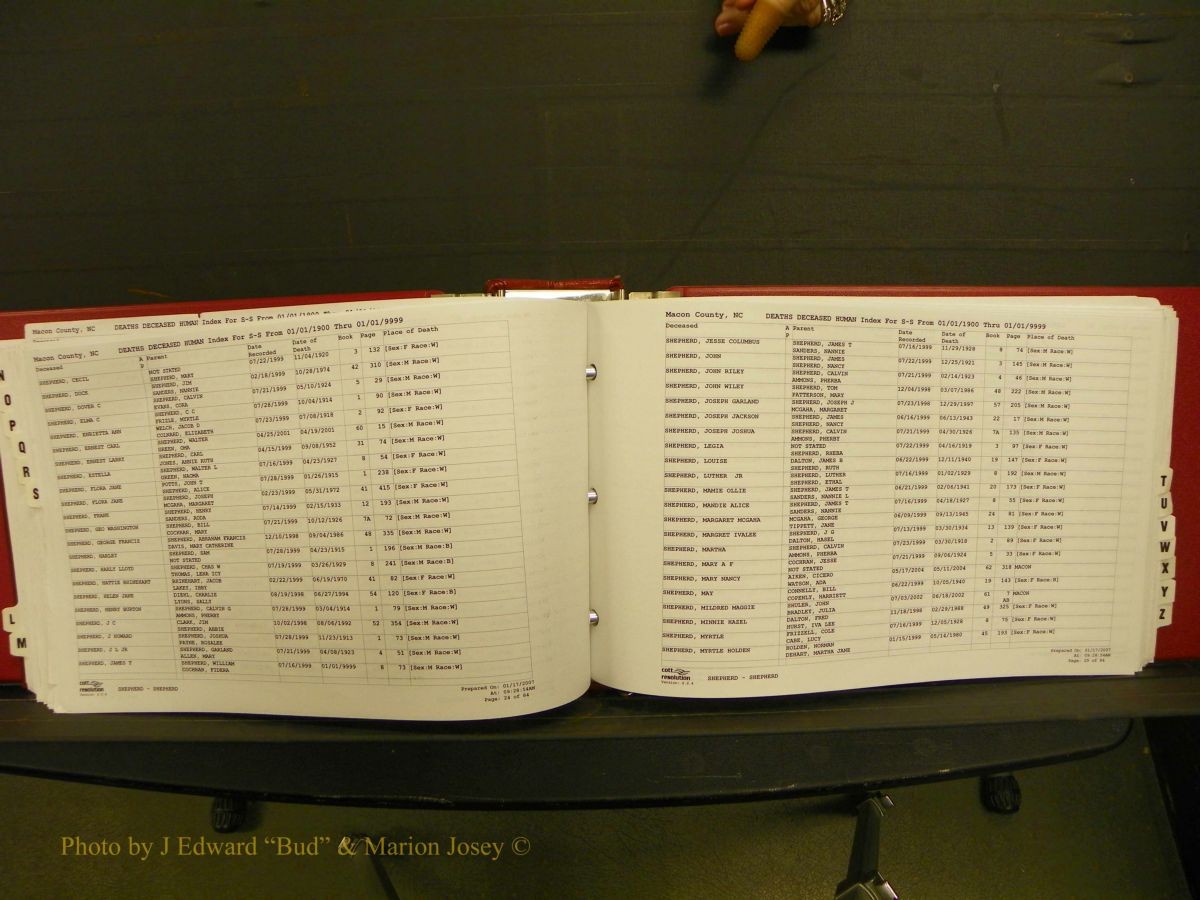 Macon County, NC DEATHS DECEASED HUMAN Index For S-S From 01/01/1900 Thru 01/01/9999
Macon County, NC DEATHS DECEASED HUMAN Index For S-S From 01/01/1900 Thru 01/01/9999
Deceased A Parent Date Recorded Date of Death Book Page Place of Death
SHEPHERD, CECIL NOT STATED 07/22/1999 11/04/1920 3 132 [Sex:F Race:W]
SHEPHERD, MARY
SHEPHERD, DOCK SHEPHERD, JIM 02/18/1999 10/28/1974 42 310 [Sex:M Race:W]
SANDERS, NANNIE
SHEPHERD, DOVER C SHEPHERD, CALVIN 07/21/1999 05/10/1924 5 29 [Sex:M Race:W]
EVANS, CORA
SHEPHERD, ELMA C SHEPHERD, C C 07/28/1999 10/04/1914 1 90 [Sex:M Race:W]
MYRTLE
SHEPHERD, HENRIETTA ANN WELCH, JACOB D 07/23/1999 07/08/1918 2 92 [Sex:F Race:W]
COLWARD, ELIZABETH
SHEPHERD, ERNEST CARL SHEPHERD, WALTER 04/25/2001 04/19/2001 60 15 [Sex:M Race:W]
GREEN, OMA
SHEPHERD, ERNEST LARRY SHEPHERD, CARL 04/15/1999 09/08/1952 31 74 [Sex:M Race:W]
JONES, ANNIE RUTH
SHEPHERD, ESTELLA SHEPHERD, WALTER L 07/16/1999 04/23/1927 8 54 [Sex:F Race:W]
GREEN, NAOMA
SHEPHERD, FLORA JANE POTTS, JOHN T 07/28/1999 01/26/1915 1 238 [Sex:F Race:W]
SHEPHERD, ALICE
SHEPHERD, FLORA JANE SHEPHERD, JOSEPH 02/23/1999 05/31/1972 41 415 [Sex:F Race:W]
MCGAHA, MARGARET
SHEPHERD, FRANK SHEPHERD, HENRY 07/14/1999 02/15/1933 12 193 [Sex:M Race:W]
SANDERS, ADDA
SHEPHERD, GEO WASHINGTON SHEPHERD, BILL 07/21/1999 10/12/1926 7A 72 [Sex:M Race:W]
COCHRAN, MARY
SHEPHERD, GEORGE FRANCIS SHEPHERD, ABRAHAM FRANCIS 12/10/1998 09/04/1986 48 335 [Sex:M Race:W]
DAVIS, MARY CATHERINE
SHEPHERD, HARLEY SHEPHERD, SAM 07/28/1999 04/23/1915 1 196 [Sex:M Race:B]
NOT STATED
SHEPHERD, HARLY LLOYD SHEPHERD, CHAS W 07/19/1999 03/26/1929 8 241 [Sex:M Race:B]
THOMAS, LENA ICY
SHEPHERD, HATTIE RHINEHART RHINEHART, JACOB 02/22/1999 06/19/1970 41 82 [Sex:F Race:W]
LAKEY, IBBY
SHEPHERD, HELEN JANE DIEHL, CHARLIE 08/19/1998 06/27/1994 54 120 [Sex:F Race:B]
LYONS, SALLY
SHEPHERD, HENRY BURTON SHEPHERD, CALVIN G 07/28/1999 03/04/1914 1 79 [Sex:M Race:W]
AMMONS, PHERBY
SHEPHERD, J C CLARK, JIM 10/02/1998 08/06/1992 52 354 [Sex:M Race:W]
SHEPHERD, ABBIE
SHEPHERD, J HOWARD SHEPHERD, JOSHUA 07/28/1999 11/23/1913 1 73 [Sex:M Race:W]
PAYNE, ROSALEE
SHEPHERD, J L JR SHEPHERD, GARLAND 07/21/1999 04/08/1923 4 51 [Sex:M Race:W]
ALLEN, MARY
SHEPHERD, JAMES T SHEPHERD, WILLIAM 07/16/1999 01/01/9999 8 73 [Sex:M Race:W]
COCHRAN, FIDERA
cott resolution
SHEPHERD - SHEPHERD
Prepared On: 01/17/2007
At: 09:28:54AM
Page: 24 of 84
Macon County, NC DEATHS DECEASED HUMAN Index For S-S From 01/01/1900 Thru 01/01/9999
Deceased A P Parent Date Recorded Date of Death Book Page Place of Death
SHEPHERD, JESSE COLUMBUS SHEPHERD, JAMES T 07/16/1999 11/29/1928 8 74 [Sex:M Race:W]
SANDERS, NANNIE
SHEPHERD, JOHN SHEPHERD, JAMES 07/22/1999 12/25/1921 3 145 [Sex:M Race:W]
SHEPHERD, NANCY
SHEPHERD, JOHN RILEY SHEPHERD, CALVIN 07/21/1999 02/14/1923 4 46 [Sex:M Race:W]
AMMONS, PHERBA
SHEPHERD, JOHN WILEY SHEPHERD, TOM 12/04/1998 03/07/1986 48 222 [Sex:M Race:W]
PATTERSON, MARY
SHEPHERD, JOSEPH GARLAND SHEPHERD, JOSEPH J 07/23/1998 12/29/1997 57 205 [Sex:M Race:W]
MCGAHA, MARGARET
SHEPHERD, JOSEPH JACKSON SHEPHERD, JAMES 06/16/1999 06/13/1943 22 17 [Sex:M Race:W]
SHEPHERD, NANCY
SHEPHERD, JOSEPH JOSHUA SHEPHERD, CALVIN 07/21/1999 04/30/1926 7A 135 [Sex:M Race:W]
AMMONS, PHERBY
SHEPHERD, LEGIA NOT STATED 07/22/1999 04/16/1919 3 97 [Sex:F Race:W]
SHEPHERD, RHEBA
SHEPHERD, LOUISE DALTON, JAMES B 06/22/1999 12/11/1940 19 147 [Sex:F Race:W]
SHEPHERD, RUTH
SHEPHERD, LUTHER JR SHEPHERD, LUTHER 07/16/1999 01/02/1929 8 192 [Sex:M Race:W]
SHEPHERD, ETHAL
SHEPHERD, MAMIE OLLIE SHEPHERD, JAMES T 06/21/1999 02/06/1941 20 173 [Sex:F Race:W]
SANDERS, NANNIE L
SHEPHERD, MANDIE ALICE SHEPHERD, JAMES T 07/16/1999 04/18/1927 8 55 [Sex:F Race:W]
SANDERS, NANNIE
SHEPHERD, MARGARET MCGAHA MCGAHA, GEORGE 06/09/1999 09/13/1945 24 81 [Sex:F Race:W]
TIPPETT, JANE
SHEPHERD, MARGRET IVALEE SHEPHERD, J G 07/13/1999 03/30/1934 13 139 [Sex:F Race:W]
DALTON, HAZEL
SHEPHERD, MARTHA SHEPHERD, CALVIN 07/23/1999 03/30/1918 2 89 [Sex:F Race:W]
AMMONS, PHERBA
SHEPHERD, MARY A F COCHRAN, JESSE 07/21/1999 09/06/1924 5 33 [Sex:F Race:W]
NOT STATED
SHEPHERD, MARY NANCY AIKEN, CICERO 05/17/2004 05/11/2004 62 318 MACON
WATSON, ADA
SHEPHERD, MAY CONNELLY, BILL 06/22/1999 10/05/1940 19 143
COPENLY, HARRIETT
SHEPHERD, MILDRED MAGGIE SHULER, JOHN 07/03/2002 06/18/2002 61 7 MACON
BRADLEY, JULIA
SHEPHERD, MINNIE HAZEL DALTON, FRED 11/18/1998 02/29/1988 49 325 [Sex:F Race:W]
HURST, IVA LEE
SHEPHERD, MYRTLE FRIZZELL, COLE 07/16/1999 12/05/1928 8 75 [Sex:F Race:W]
CABE, LUCY
SHEPHERD, MYRTLE HOLDEN HOLDEN, NORMAN 01/15/1999 05/14/1980 45 193 [Sex:F Race:W]
DEHART, MARTHA JANE
cott resolution
SHEPHERD - SHEPHERD
Prepared On: 01/17/2007
At: 09:28:54AM
Page: 25 of 84
N
O
P
Q
R
S
L
M
T
U
V
W
X
Y
Z
Photo by J Edward “Bud” & Marion Josey ©